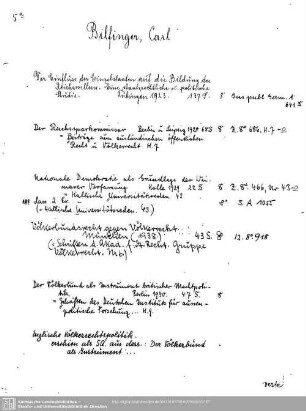 5a
Bilfinger, Carl
Der Einfluss der Einzelstaaten auf die Bildung des
Reichswillens. Eine staatsrechtliche u. politische
Studie. Tübingen 1923. 137 S. 8
Der Reichssparkommissar Berlin u. Leipzig 1928 68 S 8
= Beiträge zum ausländischen öffentlichen
Recht u. Völkerrecht H. 7
Nationale Demokratie als Grundlage der Wei-
marer Verfassung Halle 1929 22 S 8
= Hallische Universitätsreden 43
(= Hallische Universitätsreden. 43)
Völkerbundsrecht gegen Völkerrecht
München (1938) 43 S. 8
= Schriften d. Akad. f. dt. Recht. Gruppe
Völkerrecht. Nr. 6)
Der Völkerbund als Instrument britischer Machtpoli-
tik. Berlin 1940. 47 S. 8
= Schriften des Deutschen Instituts für aussen-
politische Forschung ... H. 9.
Englische Völkerrechtspolitik.
erschien als SA aus dass: Der Völkerbund
als Instrument ...
verte